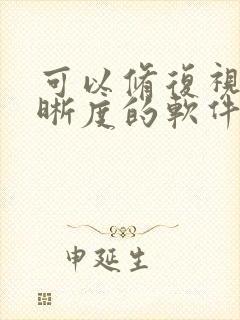 可以脩復視
晰度的軟件
申延生